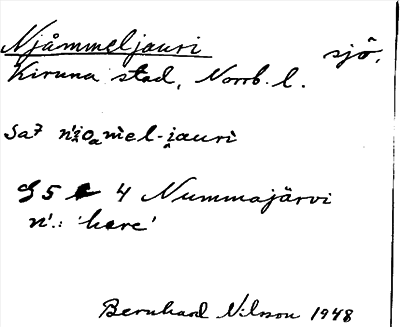 Njåmmeljauri sjö.
Kiruna stad, Norrb. l.
Sa7 n'i̯oₐmel-i̯auri
S5 4 Nummajärvi
n'.: 'hare'
Bernhard Nilsson 1948